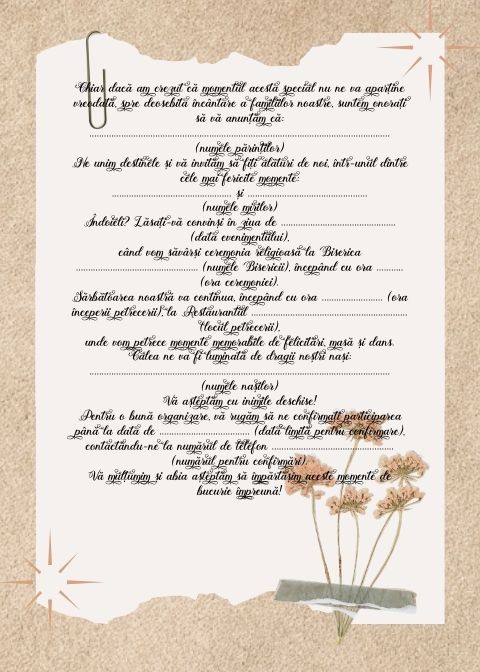 Chiar dacă am crezut că momentul acesta special nu ne va aparține
vreodată, spre deosebita încântare a familiilor noastre, suntem onorați
să vă anunțăm că:
..........................................................................................
(numele părinților)
Ne unim destinele și vă invităm să fiți alături de noi, într-unul dintre
cele mai fericite momente:
........................................ și ........................................
(numele mirilor)
Îndoieli? Lăsați-vă convinși în ziua de ........................................
(data evenimentului),
când vom săvârși ceremonia religioasă la Biserica
........................................ (numele Bisericii), începând cu ora .........
(ora ceremoniei).
Sărbătoarea noastră va continua, începând cu ora .................... (ora
începerii petrecerii), la Restaurantul ..................................................
(locul petrecerii),
unde vom petrece momente memorabile de felicitări, masă și dans.
Calea ne va fi luminată de dragii noștri nași:
..........................................................................................
(numele nașilor)
Vă așteptăm cu inimile deschise!
Pentru o bună organizare, vă rugăm să ne confirmați participarea
până la data de .............................. (data limită pentru confirmare),
contactându-ne la numărul de telefon ........................................
(numărul pentru confirmări).
Vă mulțumim și abia așteptăm să împărtășim aceste momente de
bucurie împreună!